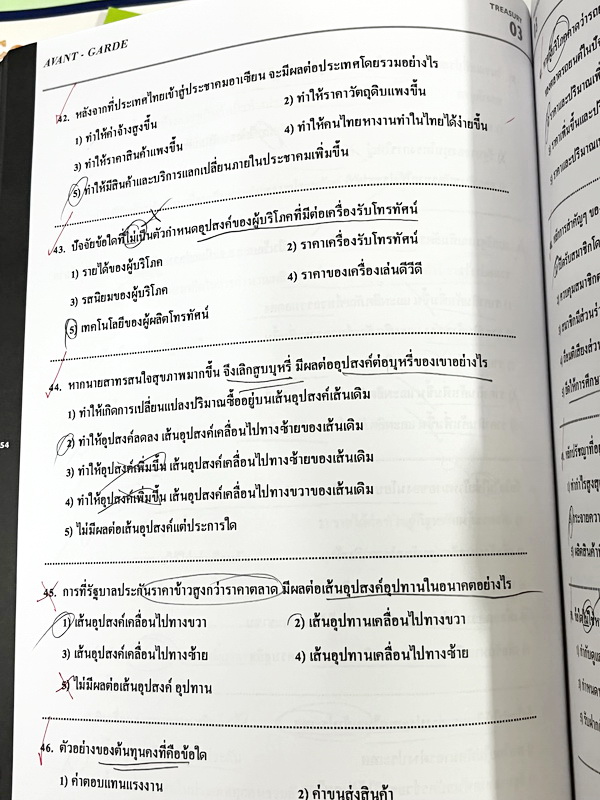 AVANT - GARDE
TREASURY
03
42. หลังจากที่ประเทศไทยเข้าสู่ประชาคมอาเซียน จะมีผลต่อประเทศโดยรวมอย่างไร
1) ทำให้ค่าจ้างสูงขึ้น
2) ทำให้ราคาวัตถุดิบแพงขึ้น
3) ทำให้ราคาสินค้าแพงขึ้น
4) ทำให้คนไทยหางานทำในไทยได้ง่ายขึ้น
5) ทำให้มีสินค้าและบริการแลกเปลี่ยนภายในประชาคมเพิ่มขึ้น
43. ปัจจัยข้อใดที่ไม่เป็นตัวกำหนดอุปสงค์ของผู้บริโภคที่มีต่อเครื่องรับโทรทัศน์
1) รายได้ของผู้บริโภค
2) ราคาเครื่องรับโทรทัศน์
3) รสนิยมของผู้บริโภค
4) ราคาของเครื่องเล่นดีวีดี
5) เทคโนโลยีของผู้ผลิตโทรทัศน์
44. หากนายสาทรสนใจสุขภาพมากขึ้น จึงเลิกสูบบุหรี่ มีผลต่ออุปสงค์ต่อบุหรี่ของเขาอย่างไร
1) ทำให้เกิดการเปลี่ยนแปลงปริมาณซื้ออยู่บนเส้นอุปสงค์เส้นเดิม
2) ทำให้อุปสงค์ลดลง เส้นอุปสงค์เคลื่อนไปทางซ้ายของเส้นเดิม
3) ทำให้อุปสงค์เพิ่มขึ้น เส้นอุปสงค์เคลื่อนไปทางซ้ายของเส้นเดิม
4) ทำให้อุปสงค์เพิ่มขึ้น เส้นอุปสงค์เคลื่อนไปทางขวาของเส้นเดิม
5) ไม่มีผลต่อเส้นอุปสงค์แต่ประการใด
54
45. การที่รัฐบาลประกันราคาข้าวสูงกว่าราคาตลาด มีผลต่อเส้นอุปสงค์อุปทานในอนาคตอย่างไร
1) เส้นอุปสงค์เคลื่อนไปทางขวา
2) เส้นอุปทานเคลื่อนไปทางขวา
3) เส้นอุปสงค์เคลื่อนไปทางซ้าย
4) เส้นอุปทานเคลื่อนไปทางซ้าย
5) ไม่มีผลต่อเส้นอุปสงค์ อุปทาน
46. ตัวอย่างของต้นทุนคงที่คือข้อใด
1) ค่าตอบแทนแรงงาน
2) ค่าขนส่งสินค้า